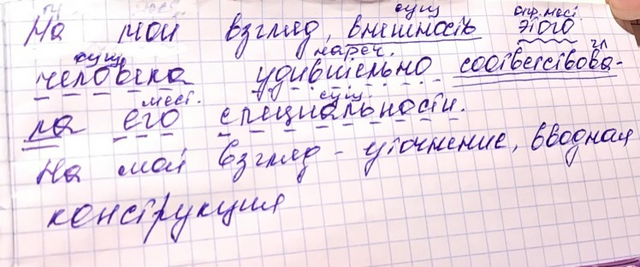 сущ. указ. мест.
На мой взгляд, внешность этого
сущ. нареч. гл
человека удивительно соответствова-
мест. сущ.
ла его специальности.
На мой взгляд - уточнение, вводная
конструкция